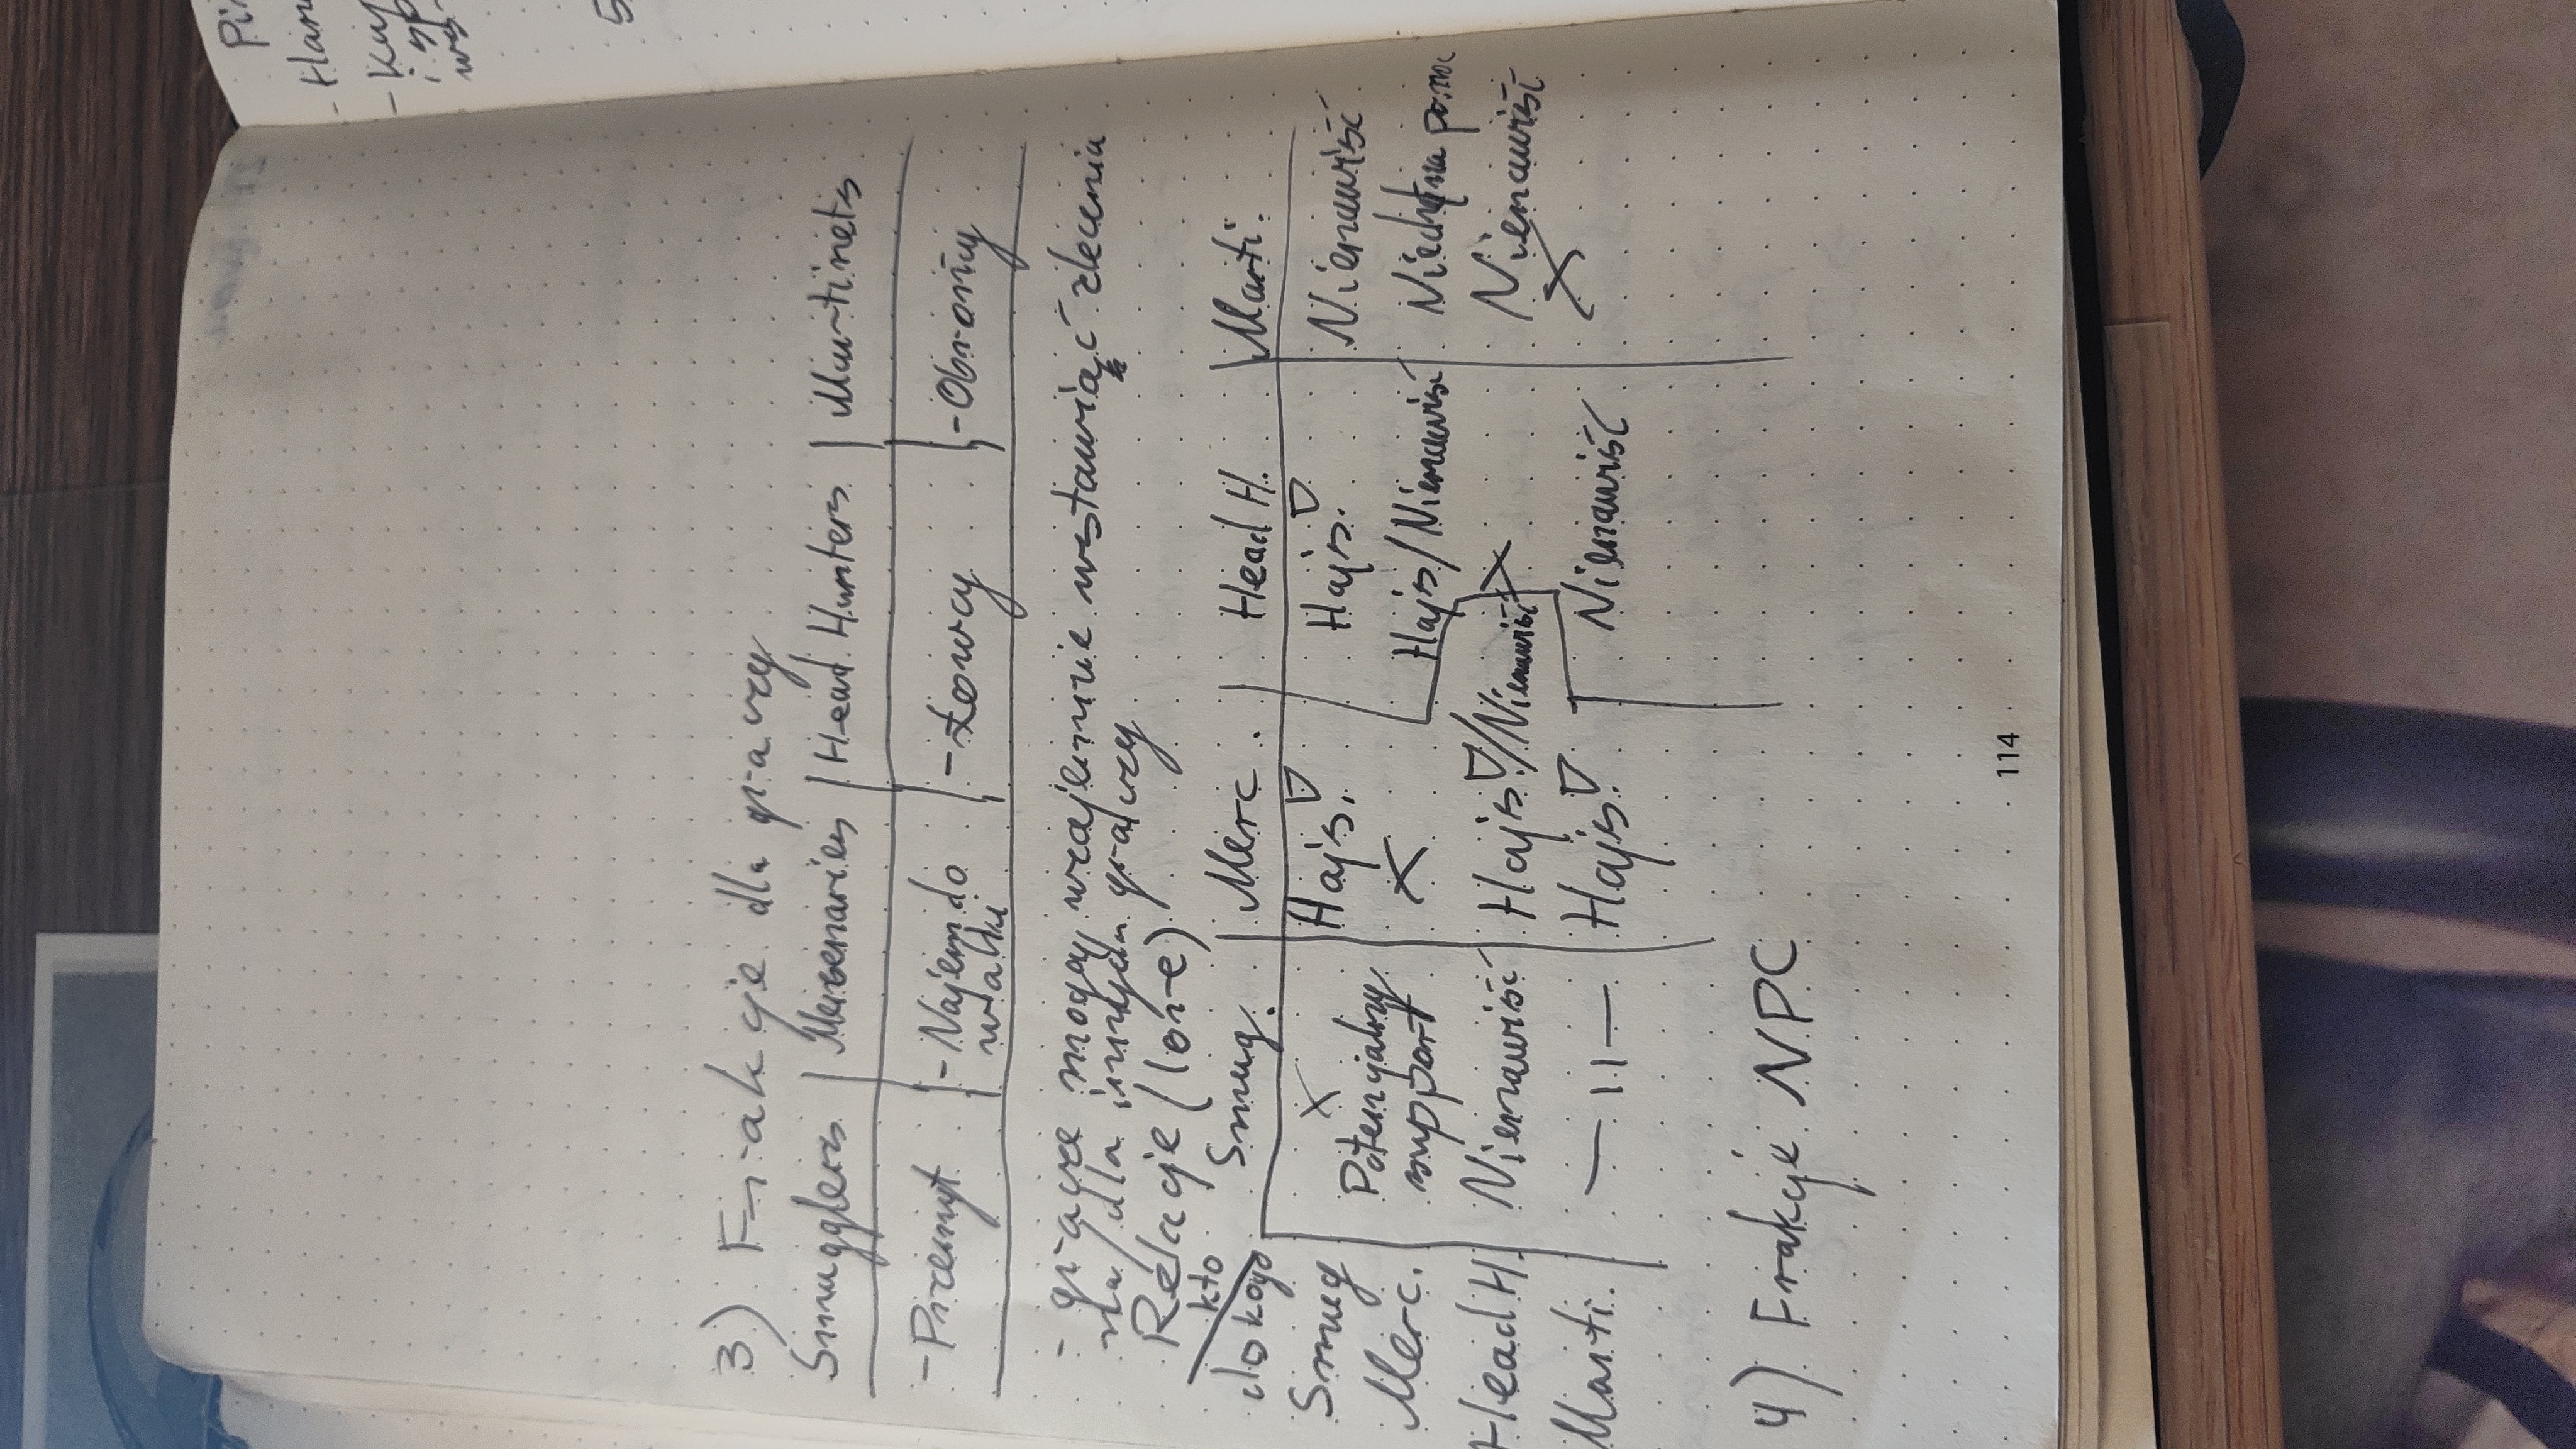 3) Frakcje dla graczy
Smugglers | Mercenaries | Head Hunters | Martinets
- Przemyt | - Najem do walki | - Łowcy | - Obrońcy
- gracze mogą wzajemnie wstawiać zlecenia
na/dla innych graczy
Relacje (lore)
kto
do kogo Smug. | Merc. | Head H. | Marti.
Smug X | Hajs! | Hajs! | Nienawiść
Merc. Potencjalny support | X | Hajs/Nienawiść | Niechętna pomoc
Head H. Nienawiść | Hajs!/Nienawiść | X | Nienawiść
Marti. — 11 — | Hajs! | Nienawiść | X
4) Frakcje NPC
114
5